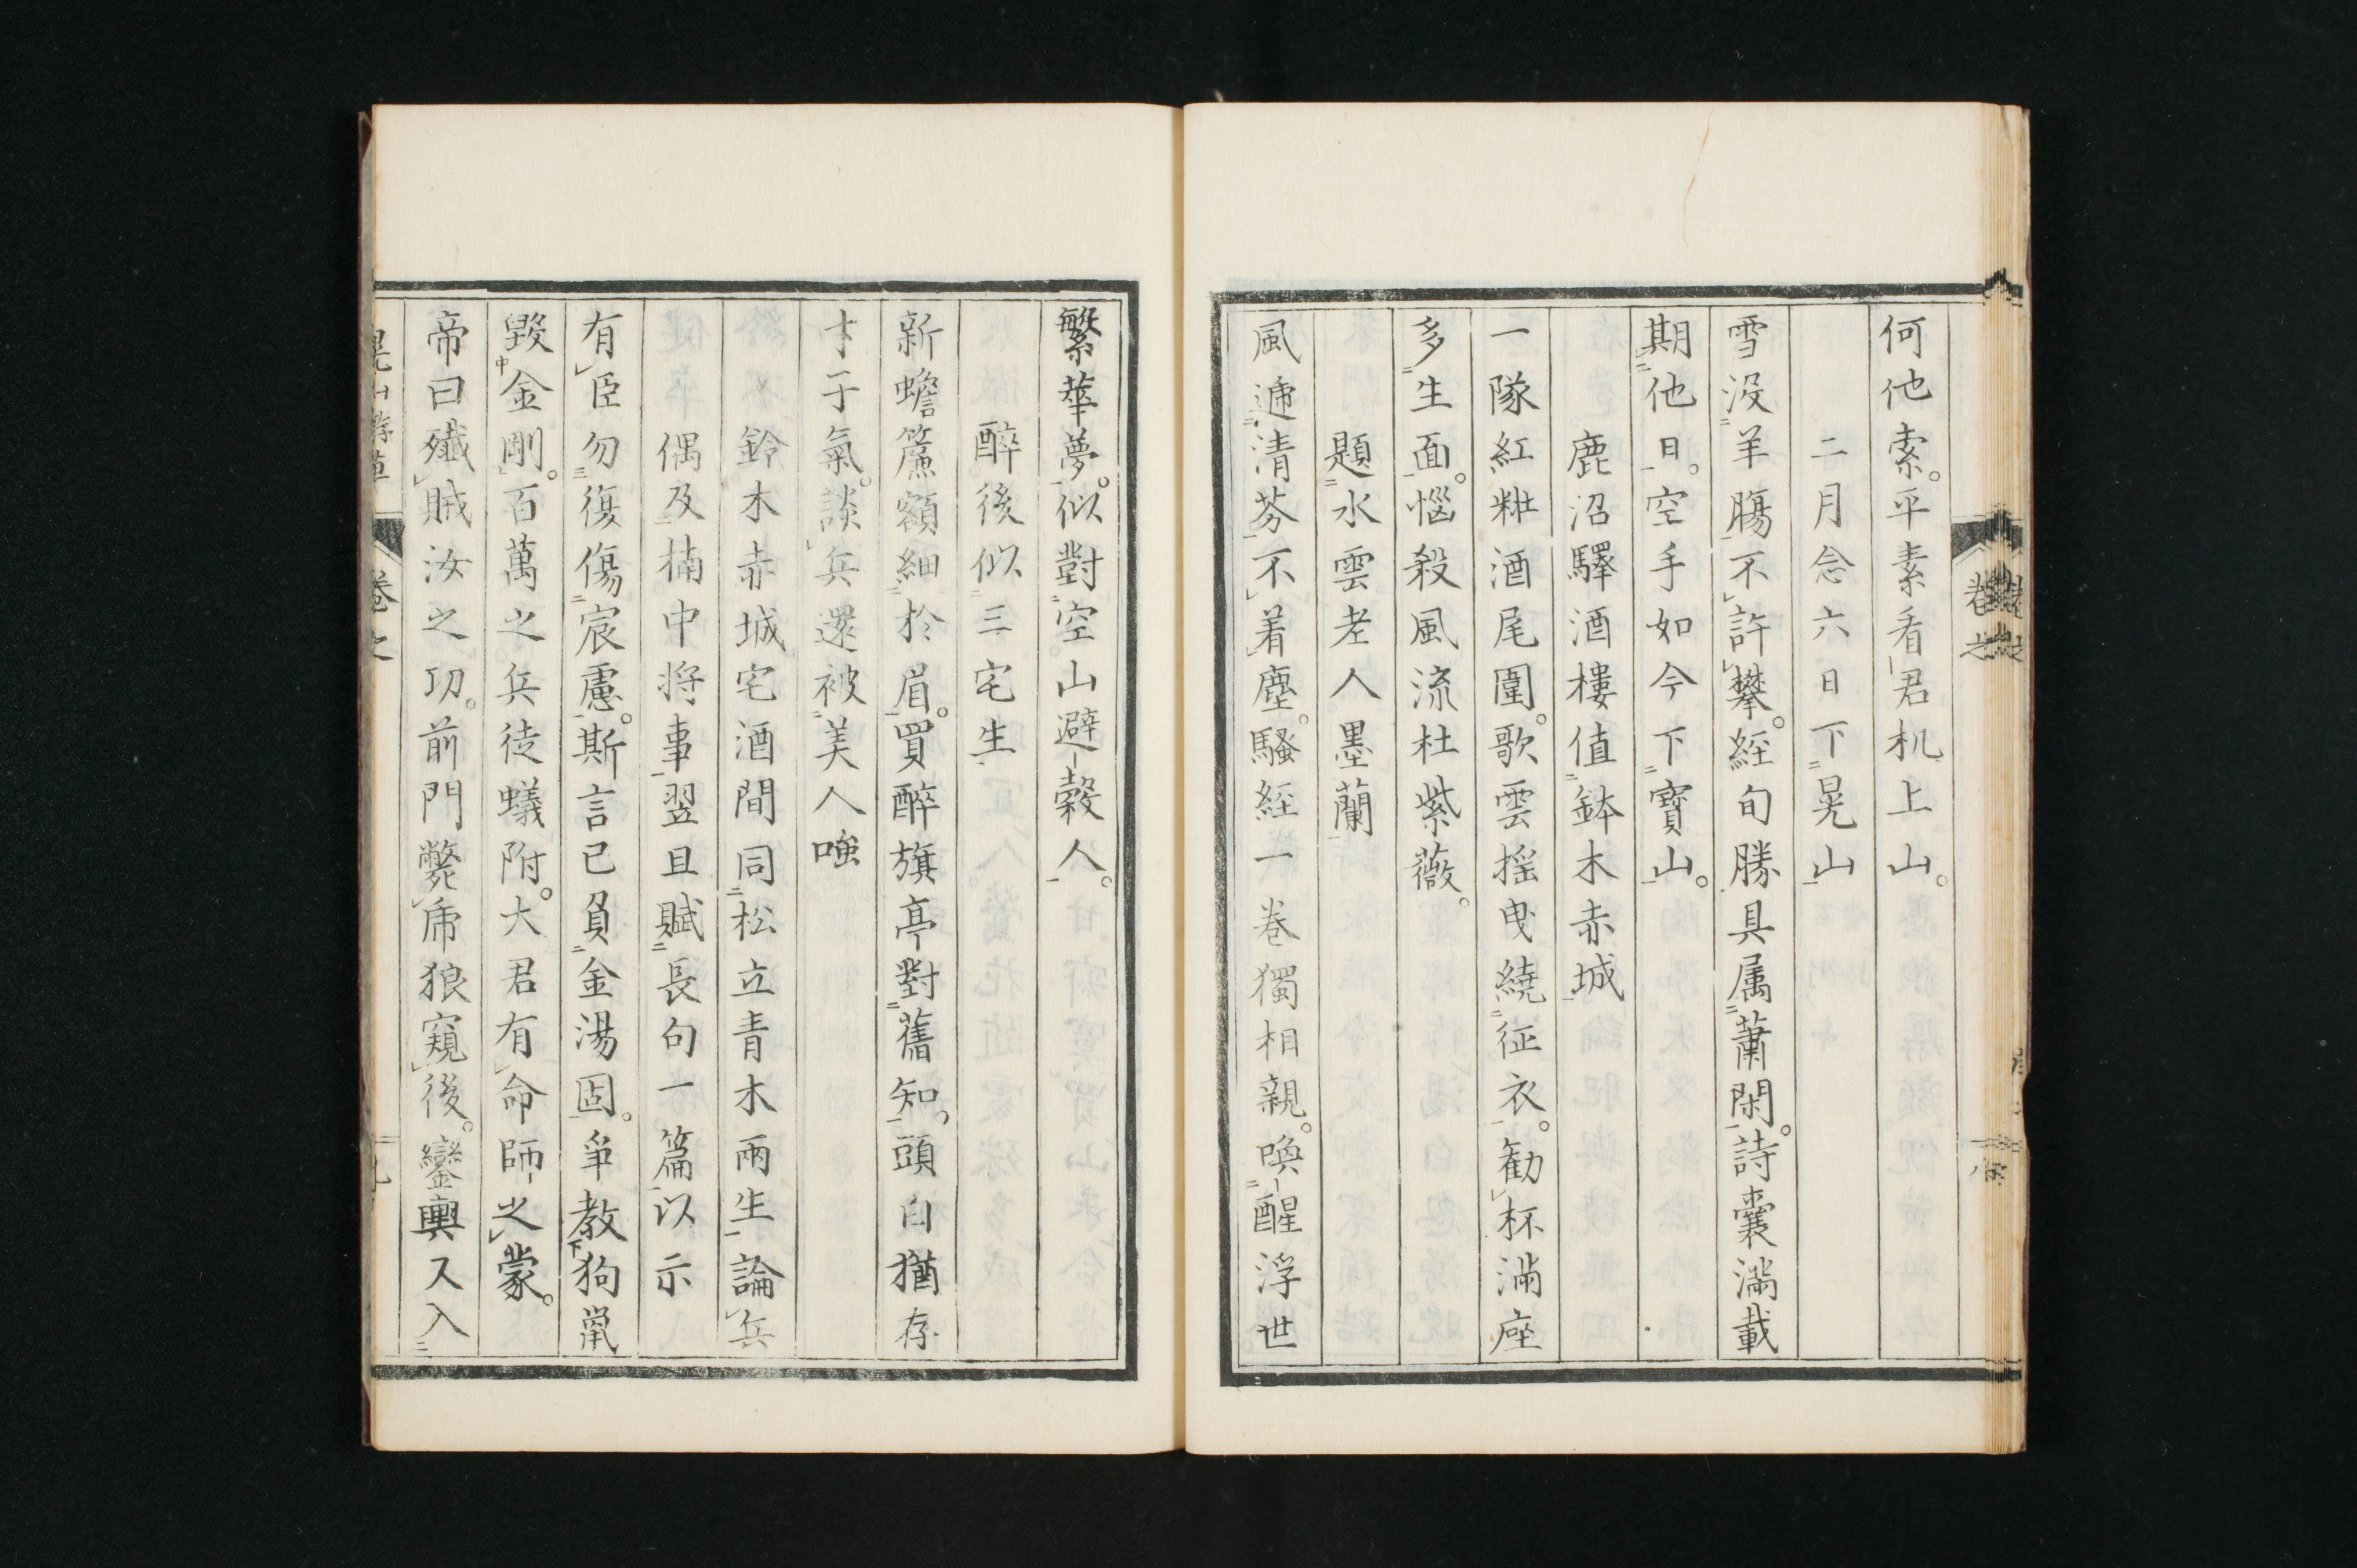 何他索。平素看君机上山。
二月念六日下晃山
雪没羊膓不許攀。経旬勝具属蕭閑。詩嚢満載
期他日。空手如今下寳山。
鹿沼驛酒樓值鉢木赤城
一隊紅粧酒尾圍。歌雲揺曳繞征衣。勧杯満座
多生面。惱殺風流杜紫薇。
題水雲老人墨蘭
風逓清芬不着塵。騒経一巻獨相親。喚醒浮世
繁華夢。似對空山避穀人。
醉後似三宅生
新蟾簾額細於眉。買醉旗亭對舊知。頭白猶存
才子氣。談兵還被美人嗤
鈴木赤城宅酒間同松立青木兩生論兵
偶及楠中将事翌且賦長句一篇以示
有臣勿復傷宸慮。斯言已負金湯固。爭教狗鼠
毀金剛。百萬之兵徒蟻附。大君有命師之蒙。
帝曰殱賊汝之功。前門斃乕狼窺後。鑾輿又入
晃山游草 卷之